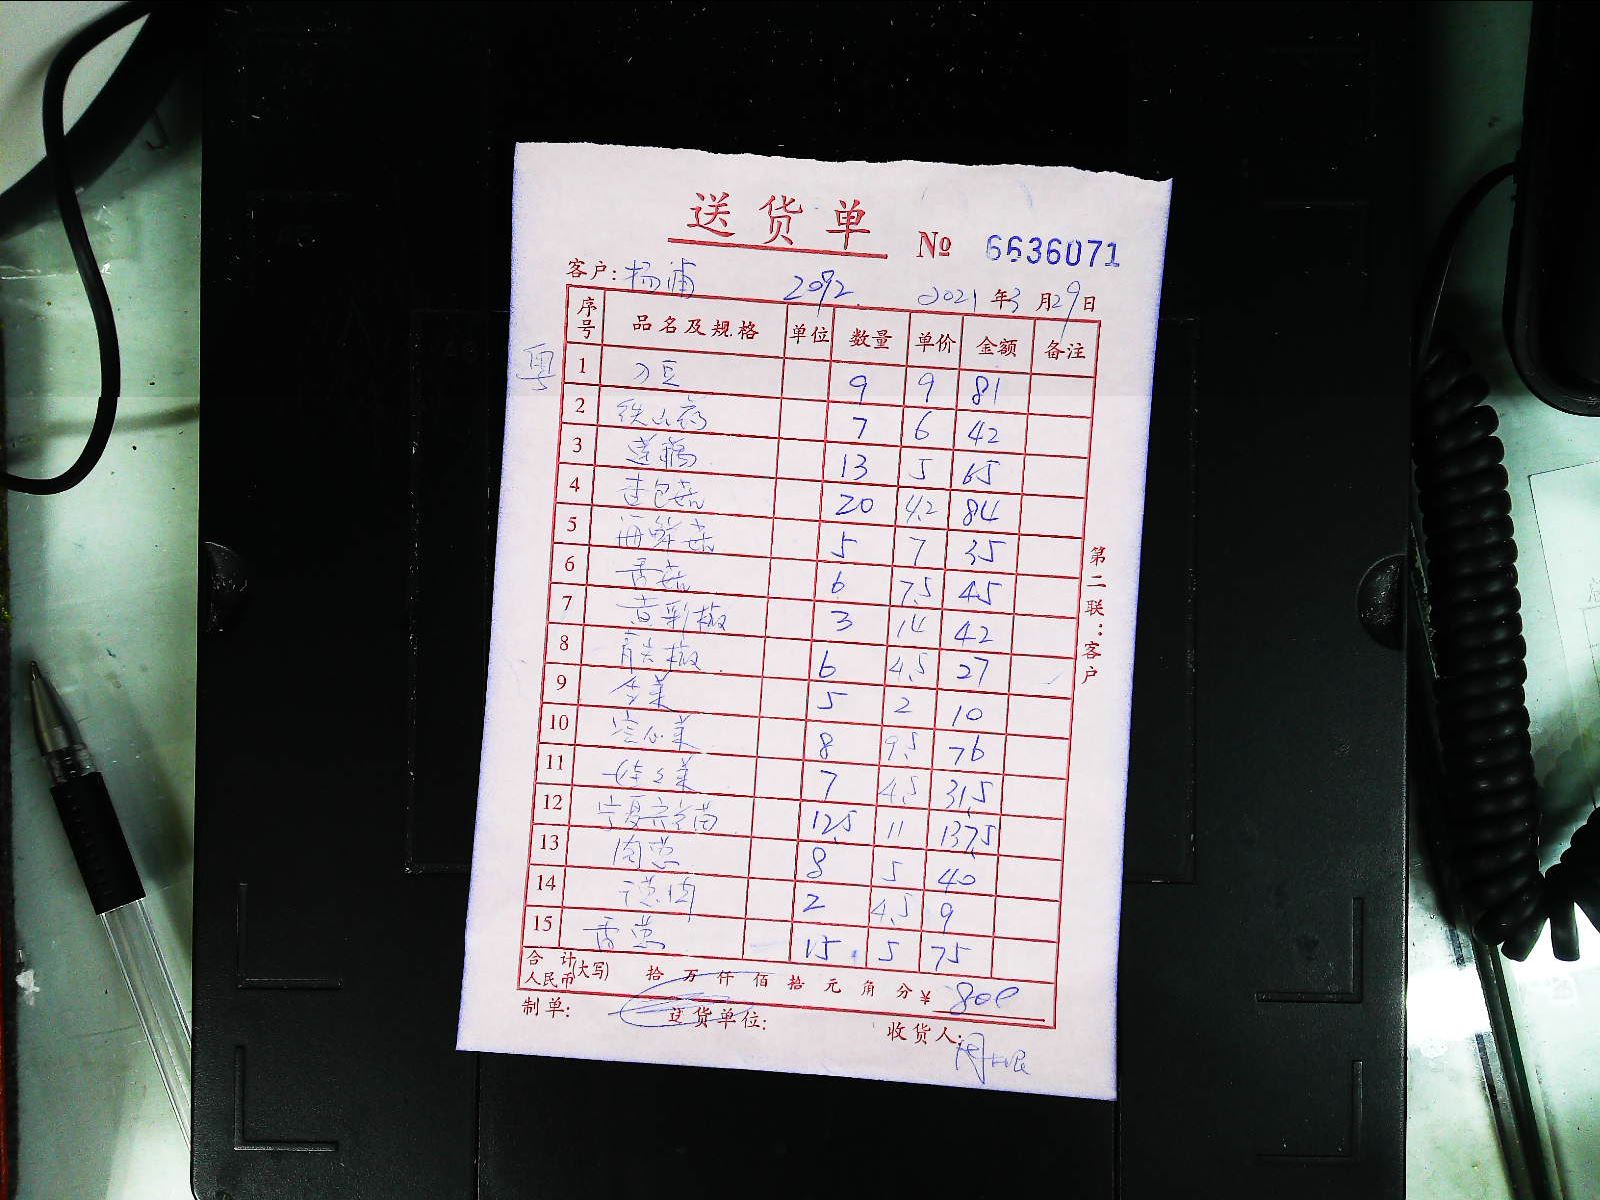 送货单 № 6636071
客户: 杨浦 2092 2021年3月29日
序号 品名及规格 单位 数量 单价 金额 备注
粤
1 刀豆 9 9 81
2 铁山药 7 6 42
3 莲藕 13 5 65
4 杏包菇 20 4.2 84
5 海鲜菇 5 7 35
6 香菇 6 7.5 45
7 黄彩椒 3 14 42
8 青尖椒 6 4.5 27
9 5 2 10
10 空心菜 8 9.5 76
11 7 4.5 31.5
12 宁夏菜苗 12.5 11 137.5
13 肉葱 8 5 40
14 2 4.5 9
15 香葱 15 5 75
合计人民币(大写) 拾 万 仟 佰 拾 元 角 分 ¥ 800
制单: 送货单位: 收货人:
第二联:客户